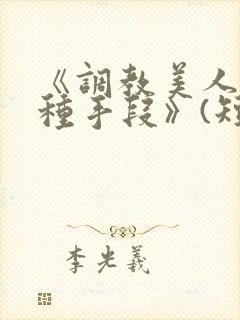 《調教美人
種手段》(短
李光羲